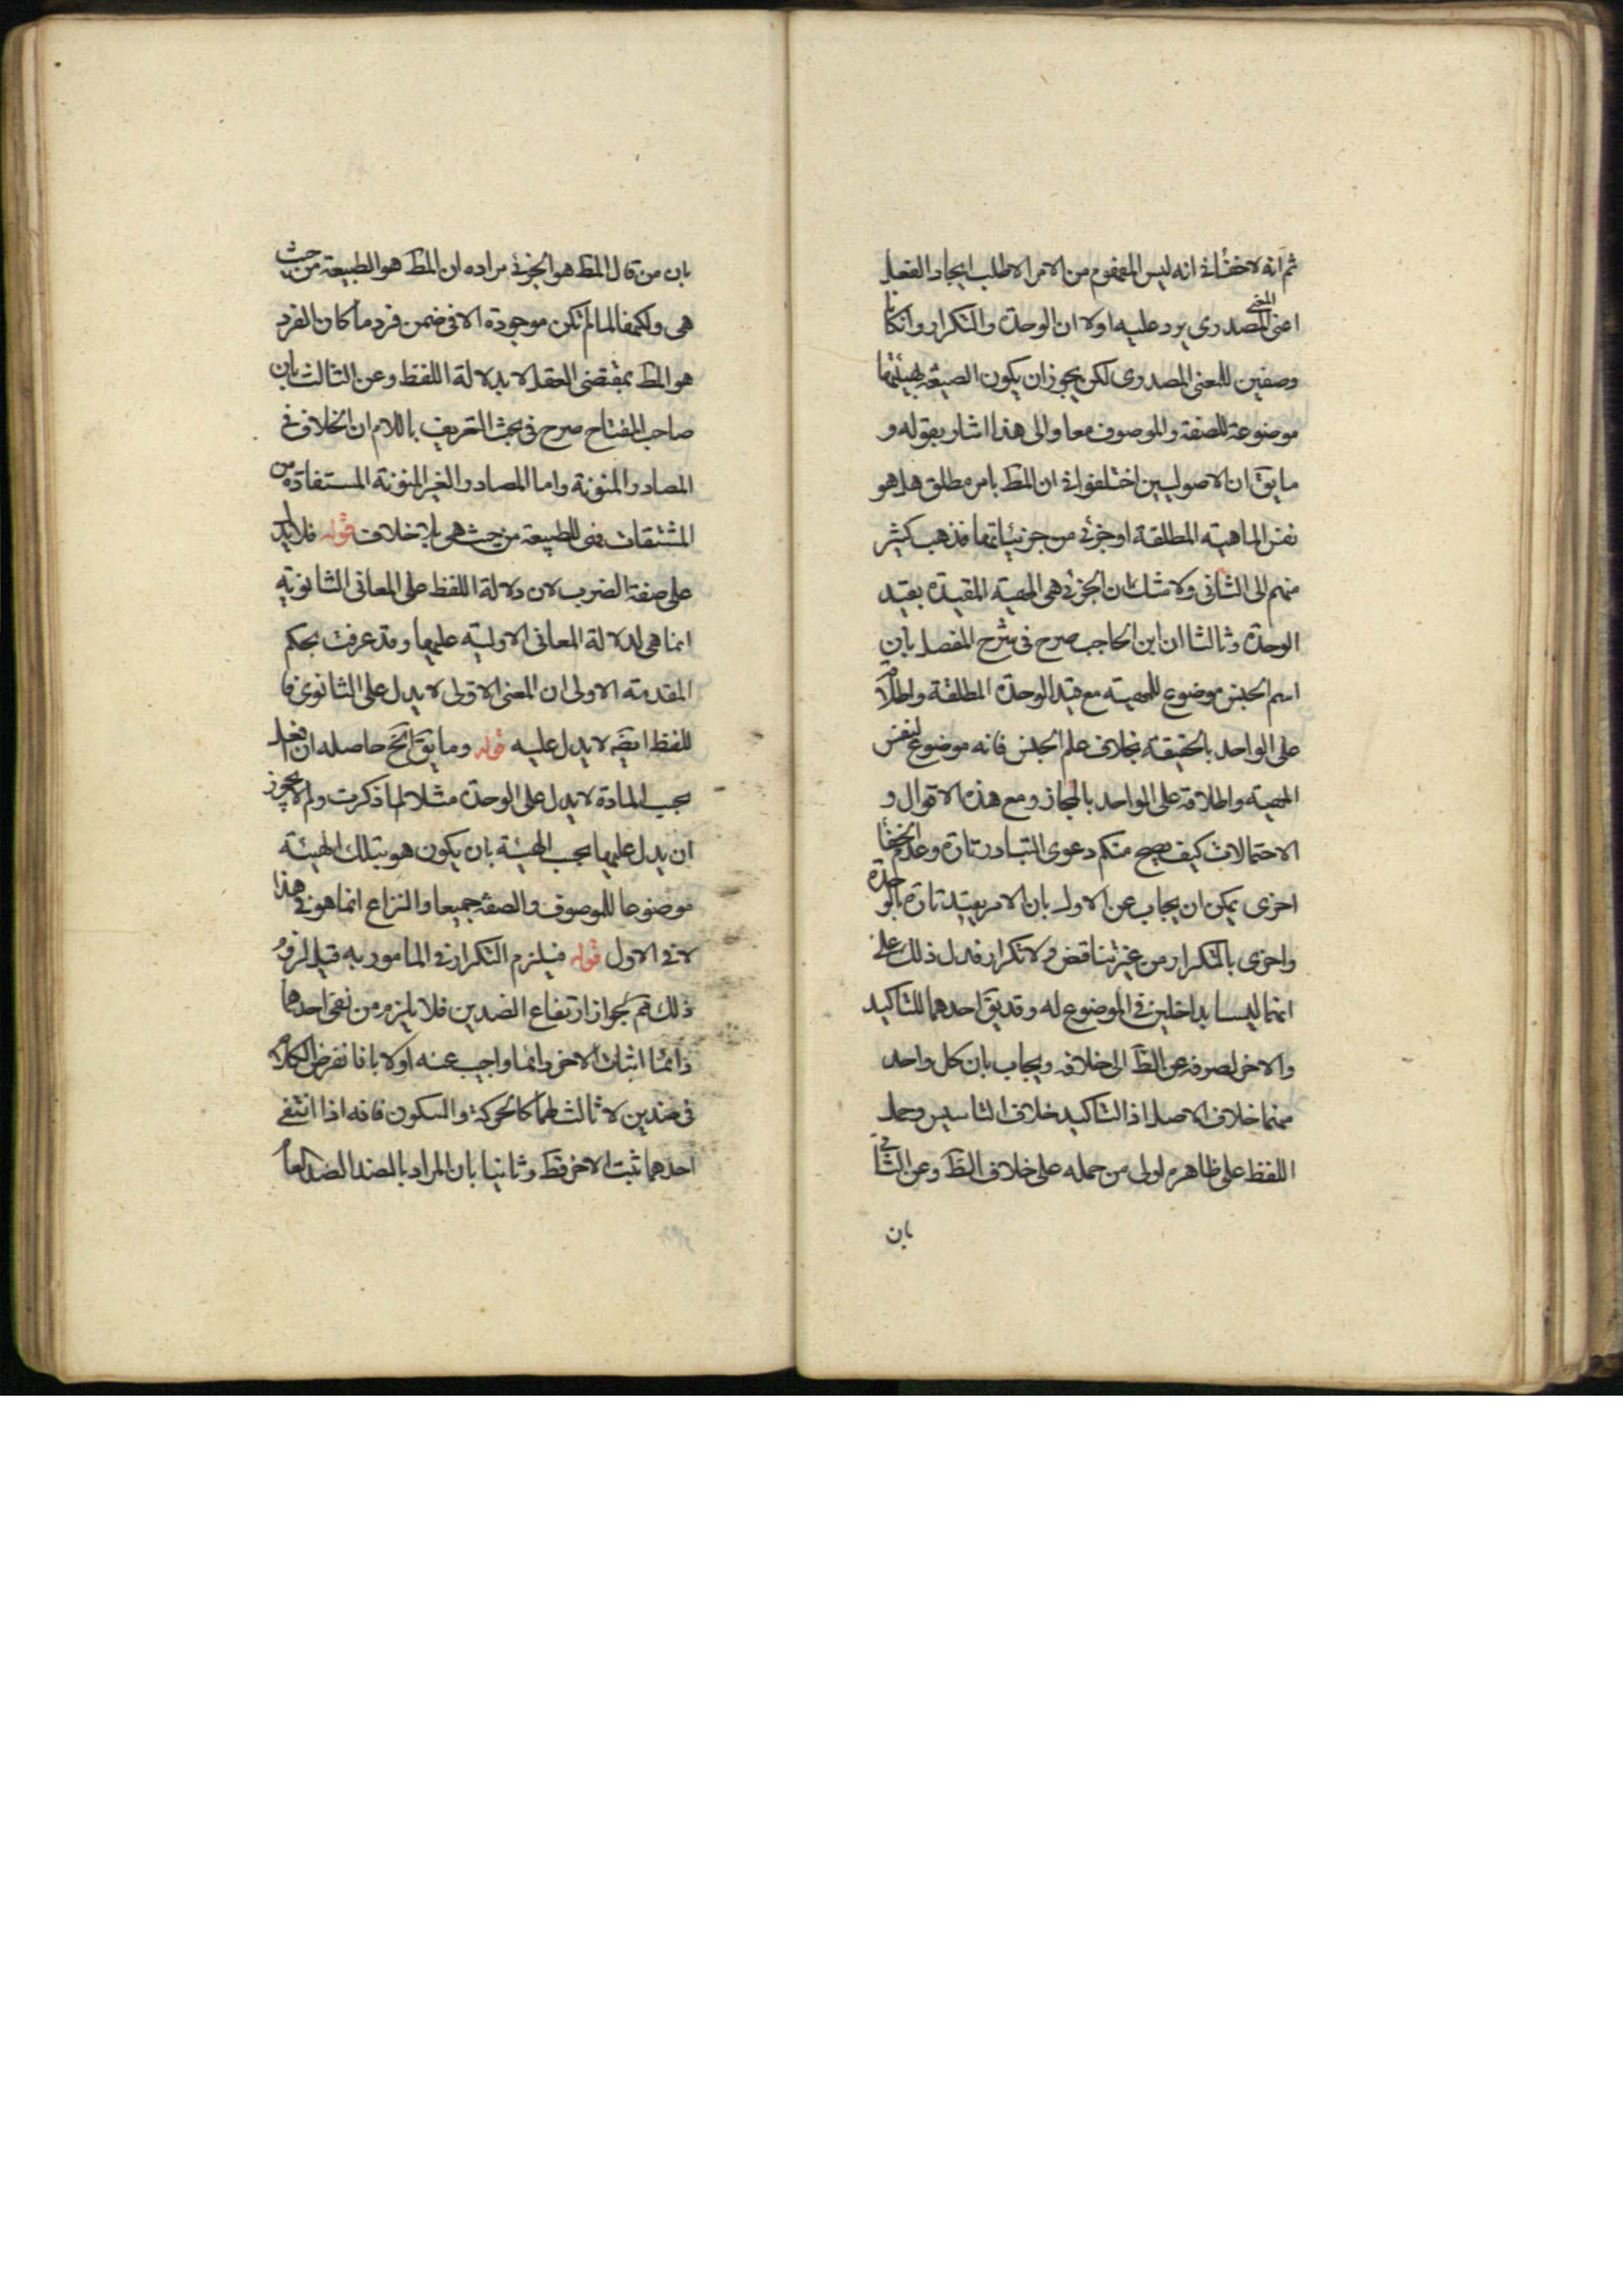 ثم انه لا خفاء فى انه ليس المفهوم من الامر الا طلب ايجاد الفعل
اعنى المعنى المصدرى يرد عليه اولا ان الوحدة والتكرار وان كانا
وصفين للمعنى المصدرى لكن يجوز ان يكون الصيغة بهيئتها
موضوعة للصفة والموصوف معا والى هذا اشار بقوله و
ما يقَ ان الاصوليين اختلفوا فى ان المط بامر مطلق هل هو
نفس الماهية المطلقة او جزئى من جزئياتها فذهب كثير
منهم الى الثانى ولا شك ان الجزئى هى المهية المقيدة بقيد
الوحدة وثالثا ان ابن الحاجب صرح فى شرح المفصل بان
اسم الجنس موضوع للمهية مع قيد الوحدة المطلقة واطلاقه
على الواحد بالحقيقة بخلاف علم الجنس فانه موضوع لنفس
المهية واطلاقه على الواحد بالمجاز ومع هذه الاقوال و
الاحتمالات كيف يصح منكم دعوى التبادر تارة وعدم الخفاء
اخرى يمكن ان يجاب عن الاول بان الامر يقيد تارة بالوحدة
واخرى بالتكرار من غير تناقض ولا تكرار فدل ذلك على
انهما ليسا بداخلين فى الموضوع له وقد يقَ احدهما للتاكيد
والاخر لصرفه عن الظَ الى خلافه ويجاب بان كل واحد
منهما خلاف الاصل اذ التاكيد خلاف التاسيس وحمل
اللفظ على ظاهره اولى من حمله على خلاف الظَ وعن الثانى
بان
بان من قال المط هو الجزئى مراده ان المط هو الطبيعة من حيث
هى ولكنها لما لم تكن موجودة الا فى ضمن فرد ما كان الفرد
هو المط بمقتضى العقل لا بدلالة اللفظ وعن الثالث بان
صاحب المفتاح صرح فى بحث التعريف باللام ان الخلاف فى
المصادر المنونة واما المصادر الغير المنونة المستفادة من
المشتقات فهى للطبيعة من حيث هى بلا خلاف قوله فلا يدل
على صفة الضرب لان دلالة اللفظ على المعانى الثانوية
انما هى لدلالة المعانى الاولية عليها وقد عرفت بحكم
المقدمة الاولى ان المعنى الاولى لا يدل على الثانوى فا
للفظ ايضَ لا يدل عليه قوله وما يقَ الخ حاصله ان افعل
بحسب المادة لا يدل على الوحدة مثلا لما ذكرت ولم لا يجوز
ان يدل عليها بحسب الهيئة بان يكون هو بتلك الهيئة
موضوعا للموصوف والصفة جميعا والنزاع انما هو فى هذا
لا فى الاول قوله فيلزم التكرار فى المامور به قيل لزوم
ذلك مم لجواز ارتفاع الضدين فلا يلزم من نفى احدهما
دائما اثبات الاخر دائما واجيب عنه اولا بانا نفرض الكلام
فى ضدين لا ثالث لهما كالحركة والسكون فانه اذا انتفى
احدهما ثبت الاخر فقط وثانيا بان المراد بالضد الضد العام